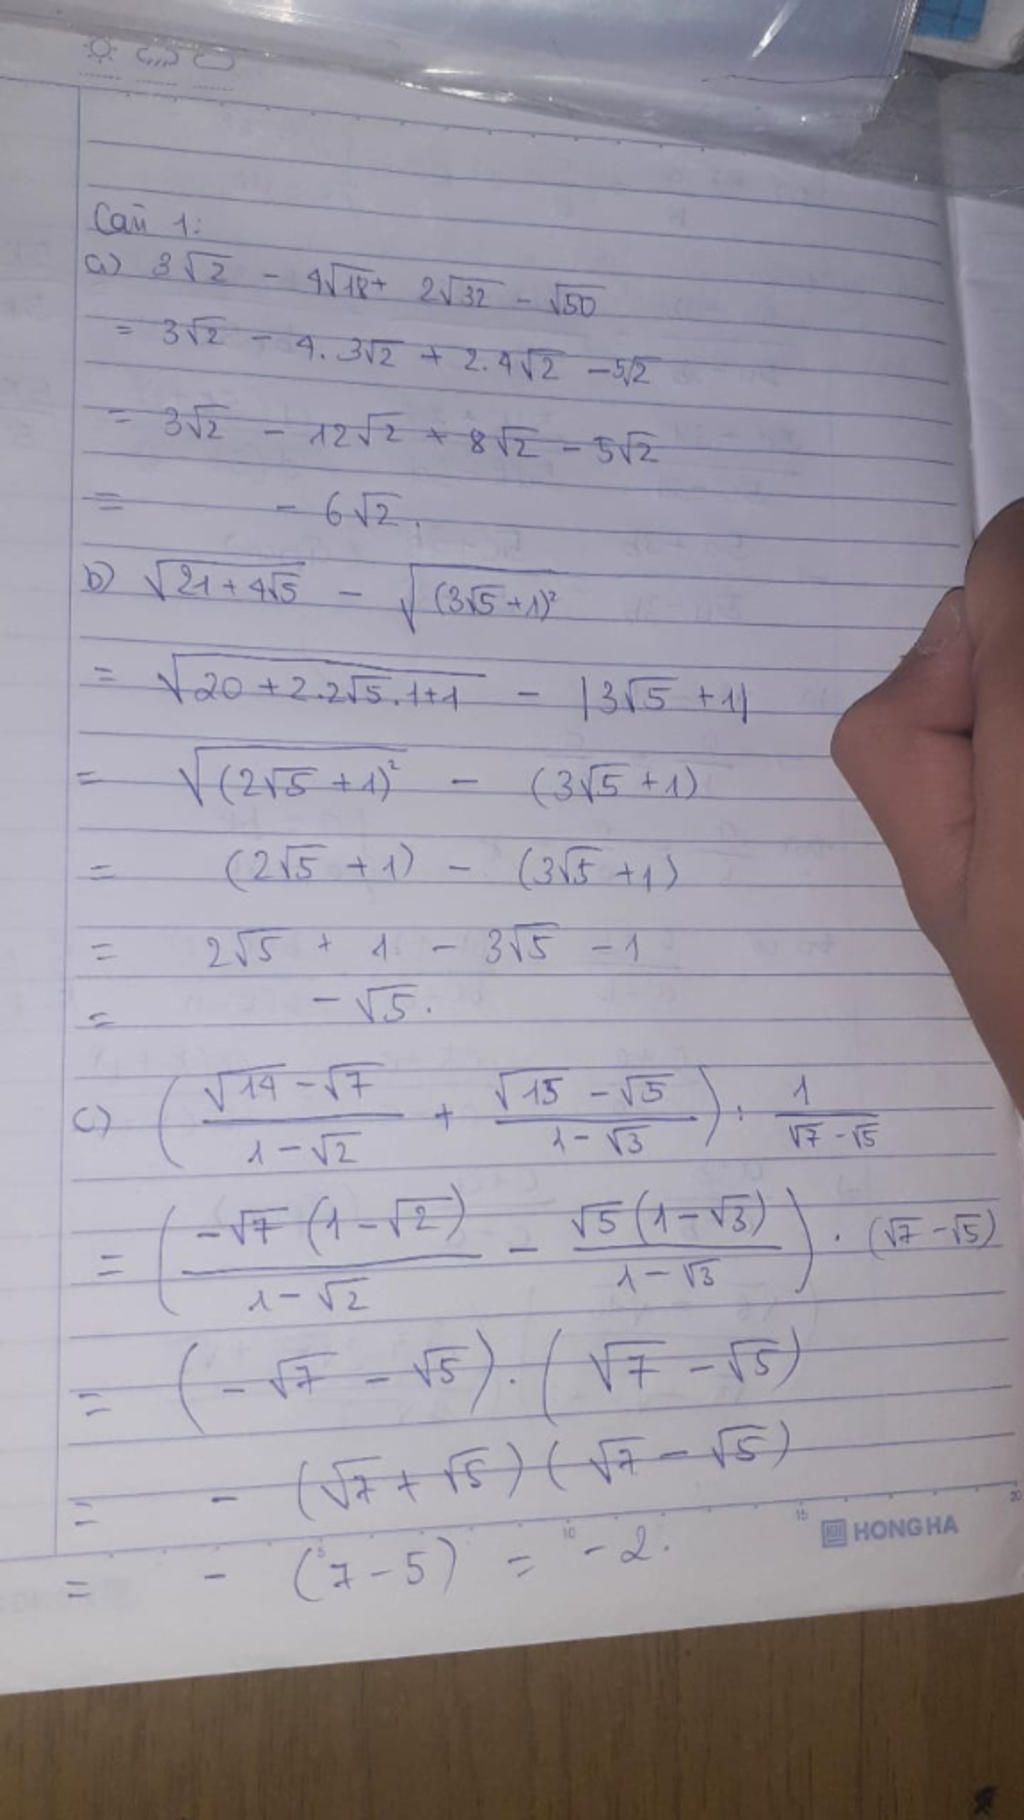 Câu 1:
a) 3√2 - 4√18 + 2√32 - √50
= 3√2 - 4.3√2 + 2.4√2 - 5√2
= 3√2 - 12√2 + 8√2 - 5√2
= - 6√2.
b) √(21 + 4√5) - √((3√5 + 1)²)
= √(20 + 2.2√5.1 + 1) - |3√5 + 1|
= √((2√5 + 1)²) - (3√5 + 1)
= (2√5 + 1) - (3√5 + 1)
= 2√5 + 1 - 3√5 - 1
= -√5.
c) ((√14 - √7)/(1 - √2) + (√15 - √5)/(1 - √3)) : 1/(√7 - √5)
= (-√7(1 - √2)/(1 - √2) - √5(1 - √3)/(1 - √3)) . (√7 - √5)
= (-√7 - √5) . (√7 - √5)
= - (√7 + √5)(√7 - √5)
= - (7 - 5) = -2.
5 10 15 20
HONG HA